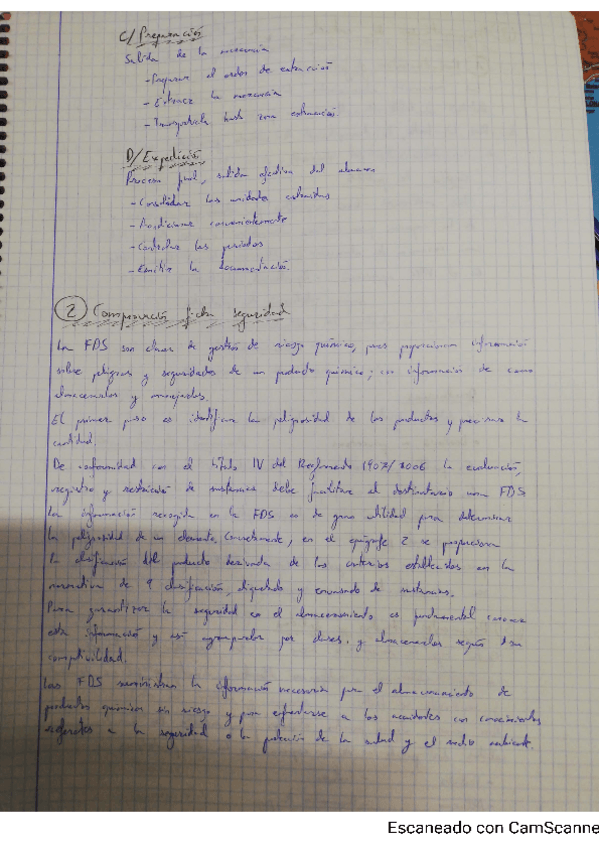 C/ Preparación
Salida de la mercancía
- Preparar el orden de extracción
- Extraer la mercancía
- Transportarla hasta zona estimación.
D/ Expedición
Proceso final, salida efectiva del almacen
- Consolidar las unidades extraidas
- Acondicionar convenientemente
- Controlar los pedidos
- Emitir la documentación.
2 Comprobación ficha seguridad
La FDS son claves de gestión de riesgo químico, pues proporcionan información
sobre peligros y seguridades de un producto químico; con información de como
almacenarlos y manejarlos.
El primer paso es identificar la peligrosidad de los productos y precisar la
cantidad.
De conformidad con el título IV del Reglamento 1907/2006 la evaluación,
registro y restricción de sustancias debe facilitarse al destinatario una FDS
La información recogida en la FDS es de gran utilidad para determinar
la peligrosidad de un elemento. Concretamente, en el epígrafe 2 se proporciona
la clasificación del producto derivada de los criterios establecidos en la
normativa de clasificación, etiquetado y envasado de sustancias.
Para garantizar la seguridad en el almacenamiento es fundamental conocer
esta información y así agruparlos por clases, y almacenarlos según su
compatibilidad.
Las FDS suministran la información necesaria para el almacenamiento de
productos químicos sin riesgo y para enfrentarse a los accidentes con conocimientos
referentes a la seguridad o la protección de la salud y el medio ambiente.
Escaneado con CamScanne